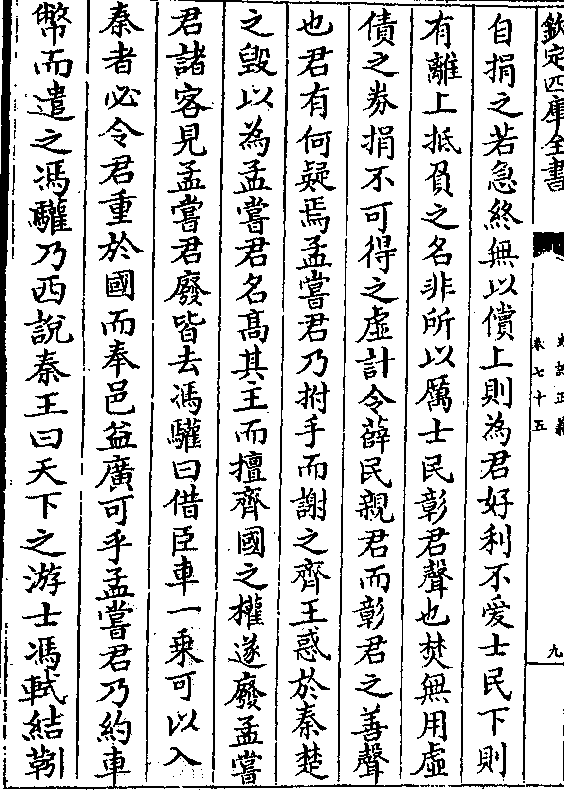 欽定四庫全書
史記正義
卷七十五
九
自捐之若急終無以償上則為君好利不愛士民下則
有離上抵負之名非所以厲士民彰君聲也焚無用虛
債之券捐不可得之虛計令薛民親君而彰君之善聲
也君有何疑焉孟嘗君乃拊手而謝之齊王惑於秦楚
之毀以為孟嘗君名髙其主而擅齊國之權遂廢孟嘗
君諸客見孟嘗君廢皆去馮驩曰借臣車一乗可以入
秦者必令君重於國而奉邑益廣可乎孟嘗君乃約車
幣而遣之馮驩乃西說秦王曰天下之游士馮軾結靷